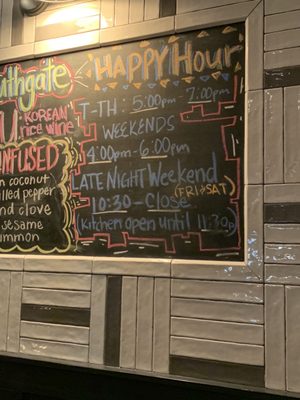 uthgate
KOREAN
rice wine
INFUSED
n coconut
illed pepper
and clove
sesame
nnamon
HAPPY HOUR
T-TH: 5:00pm-7:00pm
WEEKENDS
4:00pm-6:00pm
LATE NIGHT Weekend
(FRI & SAT)
10:30-Close
(Kitchen open until 11:30p)